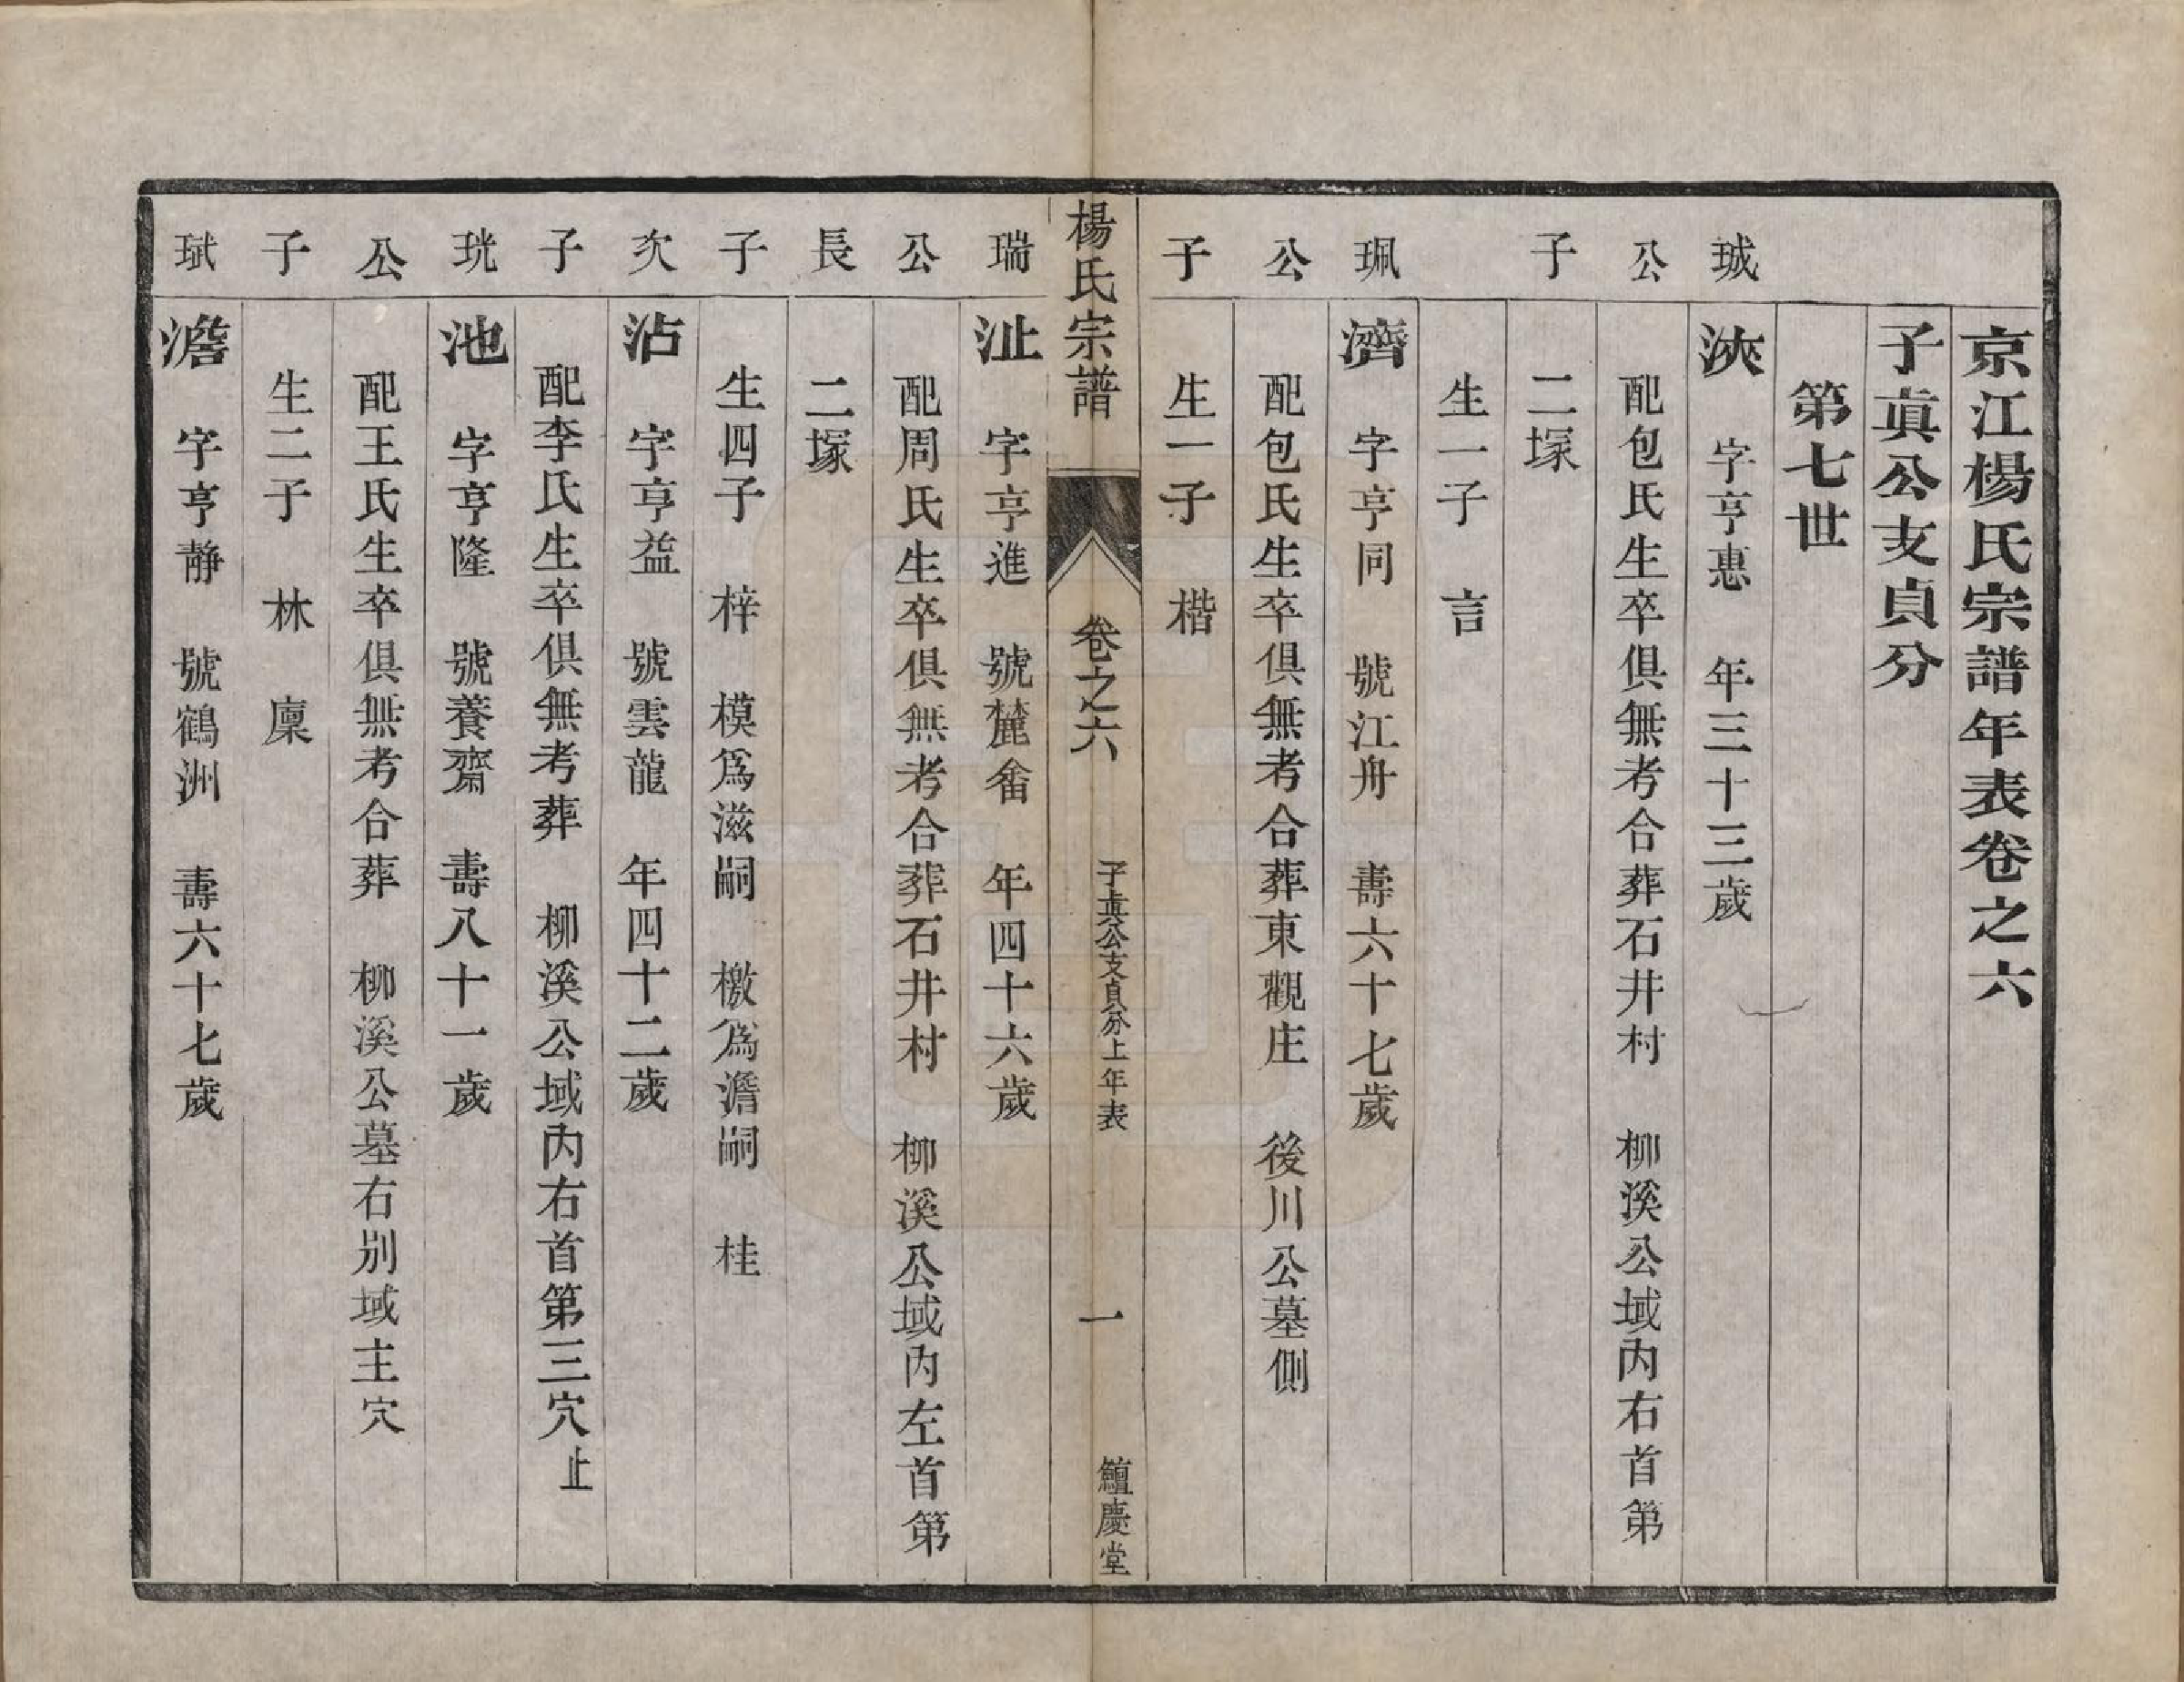 京江楊氏宗譜年表卷之六
子眞公支貞分
第七世
珹 浹 字亨惠 年三十三歲
公 配包氏生卒俱無考合葬石井村 柳溪公域内右首第
子 二塚
生一子 言
珮 濟 字亨同 號江舟 壽六十七歲
公 配包氏生卒俱無考合葬東觀庄 後川公墓側
子 生一子 楷
楊氏宗譜 卷之六 子眞公支貞分上年表 一 鱣慶堂
瑞 沚 字亨進 號麓畬 年四十六歲
公 配周氏生卒俱無考合葬石井村 柳溪公域内左首第
長 二塚
子 生四子 梓 模爲滋嗣 檄爲澹嗣 桂
次 沾 字亨益 號雲龍 年四十二歲
子 配李氏生卒俱無考葬 柳溪公域内右首第三穴止
珖 池 字亨隆 號養齋 壽八十一歲
公 配王氏生卒俱無考合葬 柳溪公墓右别域主穴
子 生二子 林 廩
珷 澹 字亨靜 號鶴洲 壽六十七歲